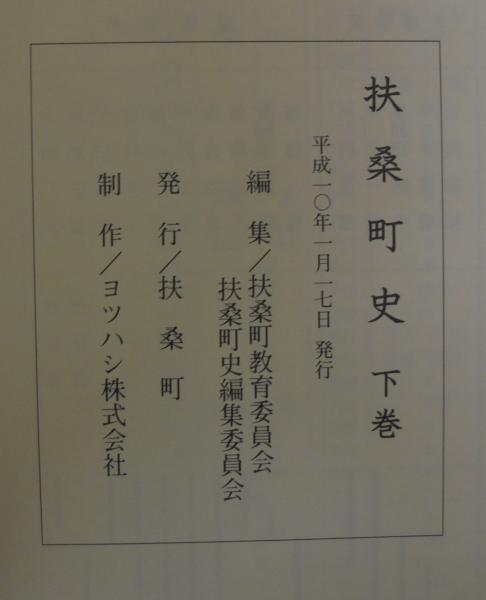 扶桑町史 下巻
平成一〇年一月一七日 発行
編集／扶桑町教育委員会
扶桑町史編集委員会
発行／扶桑町
制作／ヨツハシ株式会社